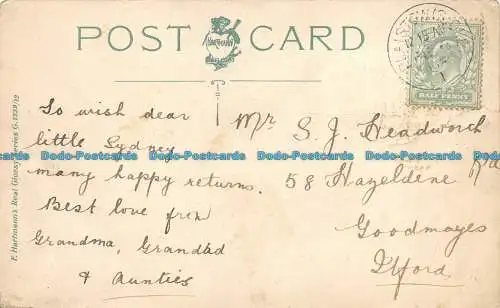 POST CARD
HARTMANN
HALF PENNY
To wish dear
little Sydney
many happy returns.
Best love from
Grandma, Grandad
& Aunties
Mr S. J. Headworth
58 Hazeldene Rd
Goodmayes
Ilford
F. Hartmann's Real Glossy Series G.3239/19
Dodo-Postcards Dodo-Postcards Dodo-Postcards Dodo-Postcards